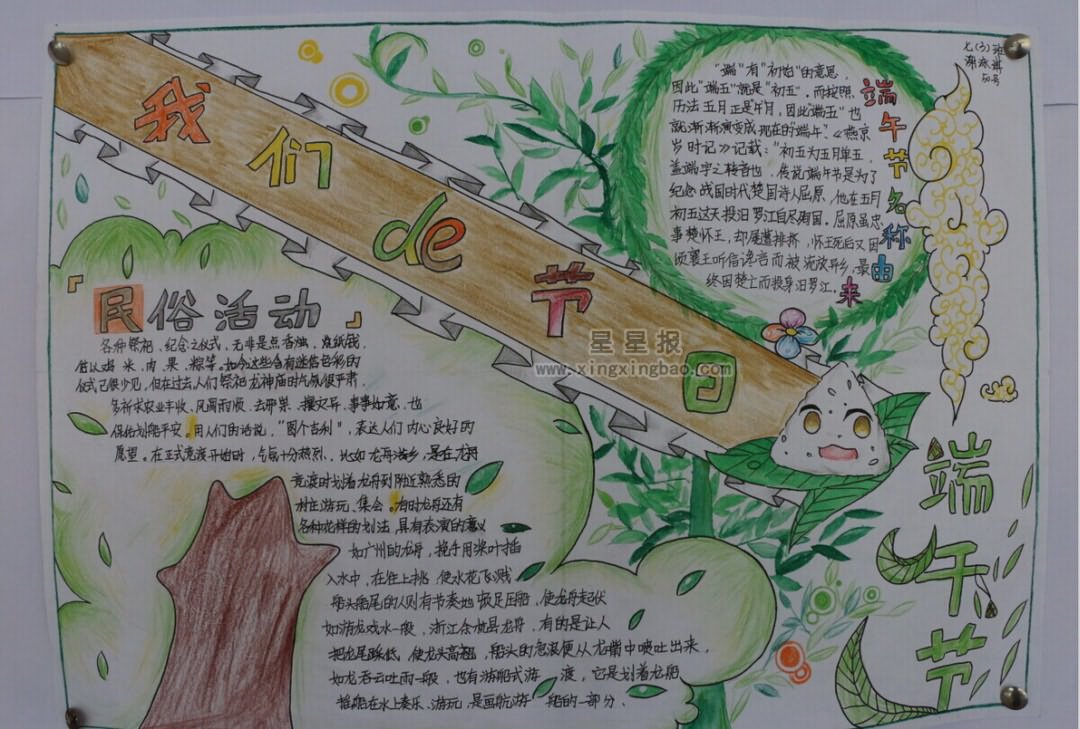 我们de节日
七(3)班
50号
端午节名称由来
"端"有"初始"的意思,
因此"端五"就是"初五"。而按照
历法五月正是午月,因此"端五"也
就渐渐演变成现在的"端午"。《燕京
岁时记》记载:"初五为五月单五,
盖端字之转音也,传说端午节是为了
纪念战国时代楚国诗人屈原,他在五月
初五这天投汨罗江自尽殉国。屈原虽忠
事楚怀王,却屡遭排挤,怀王死后又因
顷襄王听信谗言而被流放异乡,最
终因楚亡而投身汨罗江。
星星报
www.xingxingbao.com
「民俗活动」
各种祭祀、纪念之仪式,无非是点香烛,烧纸钱,
供以鸡、米、肉、果、粽等。如今这些含有迷信色彩的
仪式已很少见,但在过去,人们祭祀龙神庙时气氛很严肃,
多祈求农业丰收、风调雨顺、去邪祟、攘灾异、事事如意,也
保佑划船平安。用人们的话说,"图个吉利",表达人们内心良好的
愿望。在正式竞渡开始时,气氛十分热烈。比如龙舟游乡,是在龙舟
竞渡时划着龙舟到附近熟悉的
村庄游玩、集会。有时龙舟还有
各种花样的划法,具有表演的意义
如广州的龙舟,挽手用桨叶插
入水中,在往上挑,使水花飞溅
船头船尾的人则有节奏地顿足压船,使龙舟起伏
如游龙戏水一般,浙江余杭县龙舟,有的是让人
把龙尾踩低,使龙头高翘,船头的急浪便从龙嘴中喷吐出来,
如龙吞云吐雨一般,也有游船式游渡,它是划着龙船
在水上奏乐、游玩,是画航游船的一部分、
端午节